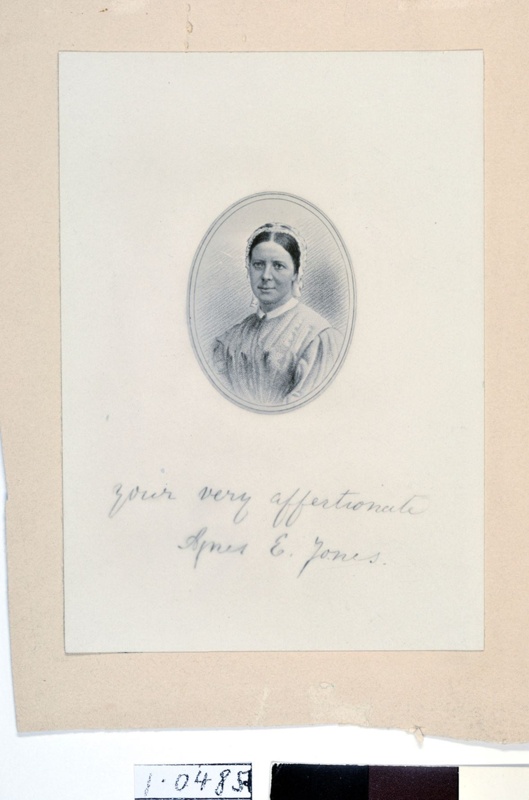 your very affectionate
Agnes E. Jones.
1.0485